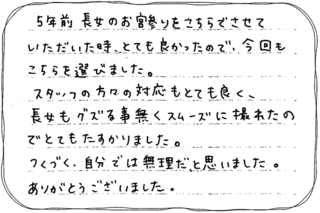 5年前 長女のお宮参りをさちらでさせて
いただいた時、とても良かったので、今回も
こちらを選びました。
スタッフの方々の対応もとても良く、
長女もグズる事無くスムーズに撮れたの
でとてもたすかりました。
つくづく、自分では無理だと思いました。
ありがとうございました。